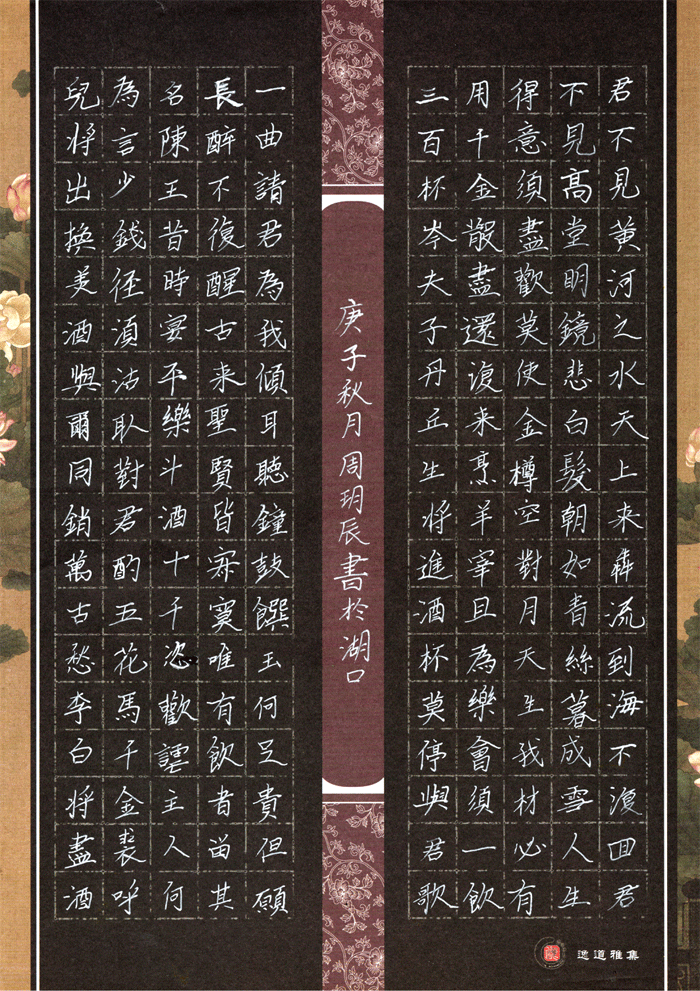 君不見黃河之水天上来犇流到海不復回君
不見高堂明鏡悲白髮朝如青絲暮成雪人生
得意須盡歡莫使金樽空對月天生我材必有
用千金散盡還復来烹羊宰且為樂會須一飲
三百杯岑夫子丹丘生将進酒杯莫停與君歌
一曲請君為我傾耳聽鐘鼓饌玉何足貴但願
長醉不復醒古来聖賢皆寂寞唯有飲者留其
名陳王昔時宴平樂斗酒十千恣歡謔主人何
為言少錢径須沽取對君酌五花馬千金裘呼
兒将出換美酒與爾同銷萬古愁李白将盡酒
庚子秋月周玥辰書於湖口
逸道雅集